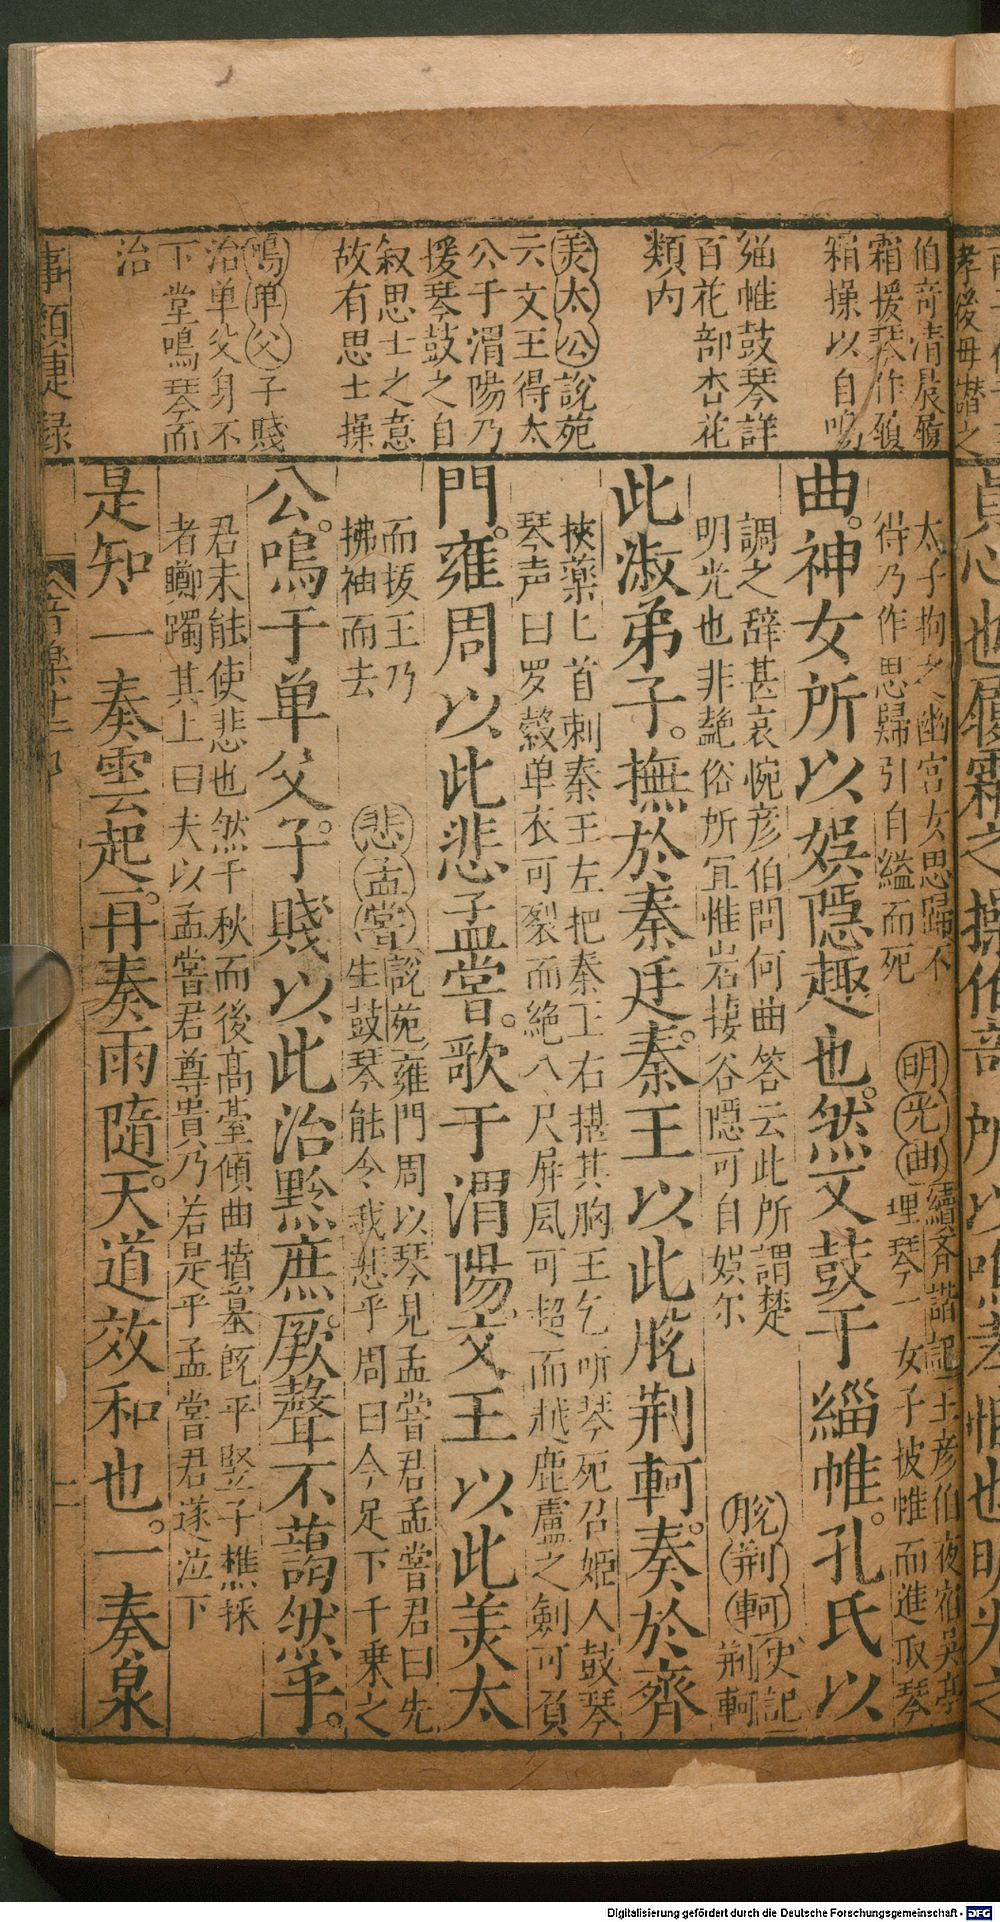 伯奇清晨履
霜援琴作履
霜操以自鳴
緇帷鼓琴詳
百花部杏花
類內
羙太公說苑
云文王得太
公于渭陽乃
援琴鼓之自
叙思士之意
故有思士操
鳴单父子賤
治单父身不
下堂鳴琴而
治
事類捷録
太子拘之幽宫女思歸不
待乃作思歸引自縊而死
明光曲續齐諧記王彦伯夜宿吳亭
埋琴一女子披帷而進取琴
曲。神女所以娯隠趣也。然又鼓于緇帷。孔氏以
調之辞甚哀惋彦伯問何曲答云此所謂楚
明光也非艶俗所宜惟岩接谷隠可自娯尔
脱荆軻史記
荆軻
此淑弟子。撫於秦廷。秦王以此脱荆軻。奏於齊
挾藥匕首刺秦王左把秦王右揕其胸王乞听琴死召姬人鼓琴
琴声曰罗縠单衣可裂而絶八尺屏風可超而越鹿盧之劍可負
門。雍周以。此悲孟嘗。歌于渭陽。文王以此羙太
而抜王乃
拂袖而去
悲孟嘗說苑雍門周以琴見孟嘗君孟嘗君曰先
生鼓琴能令我悲乎周曰今足下千乗之
公。鳴于单父。子賤以此治黔庶。厥聲不藹然乎。
君未能使悲也然千秋而後髙臺傾曲墳墓旣平竪子樵採
者躑躅其上曰夫以孟嘗君尊貴乃若是乎孟嘗君遂泣下
是知一奏雲起。再奏雨隨。天道效和也。一奏泉
音樂廿二部
二
Digitalisierung gefördert durch die Deutsche Forschungsgemeinschaft - DFG